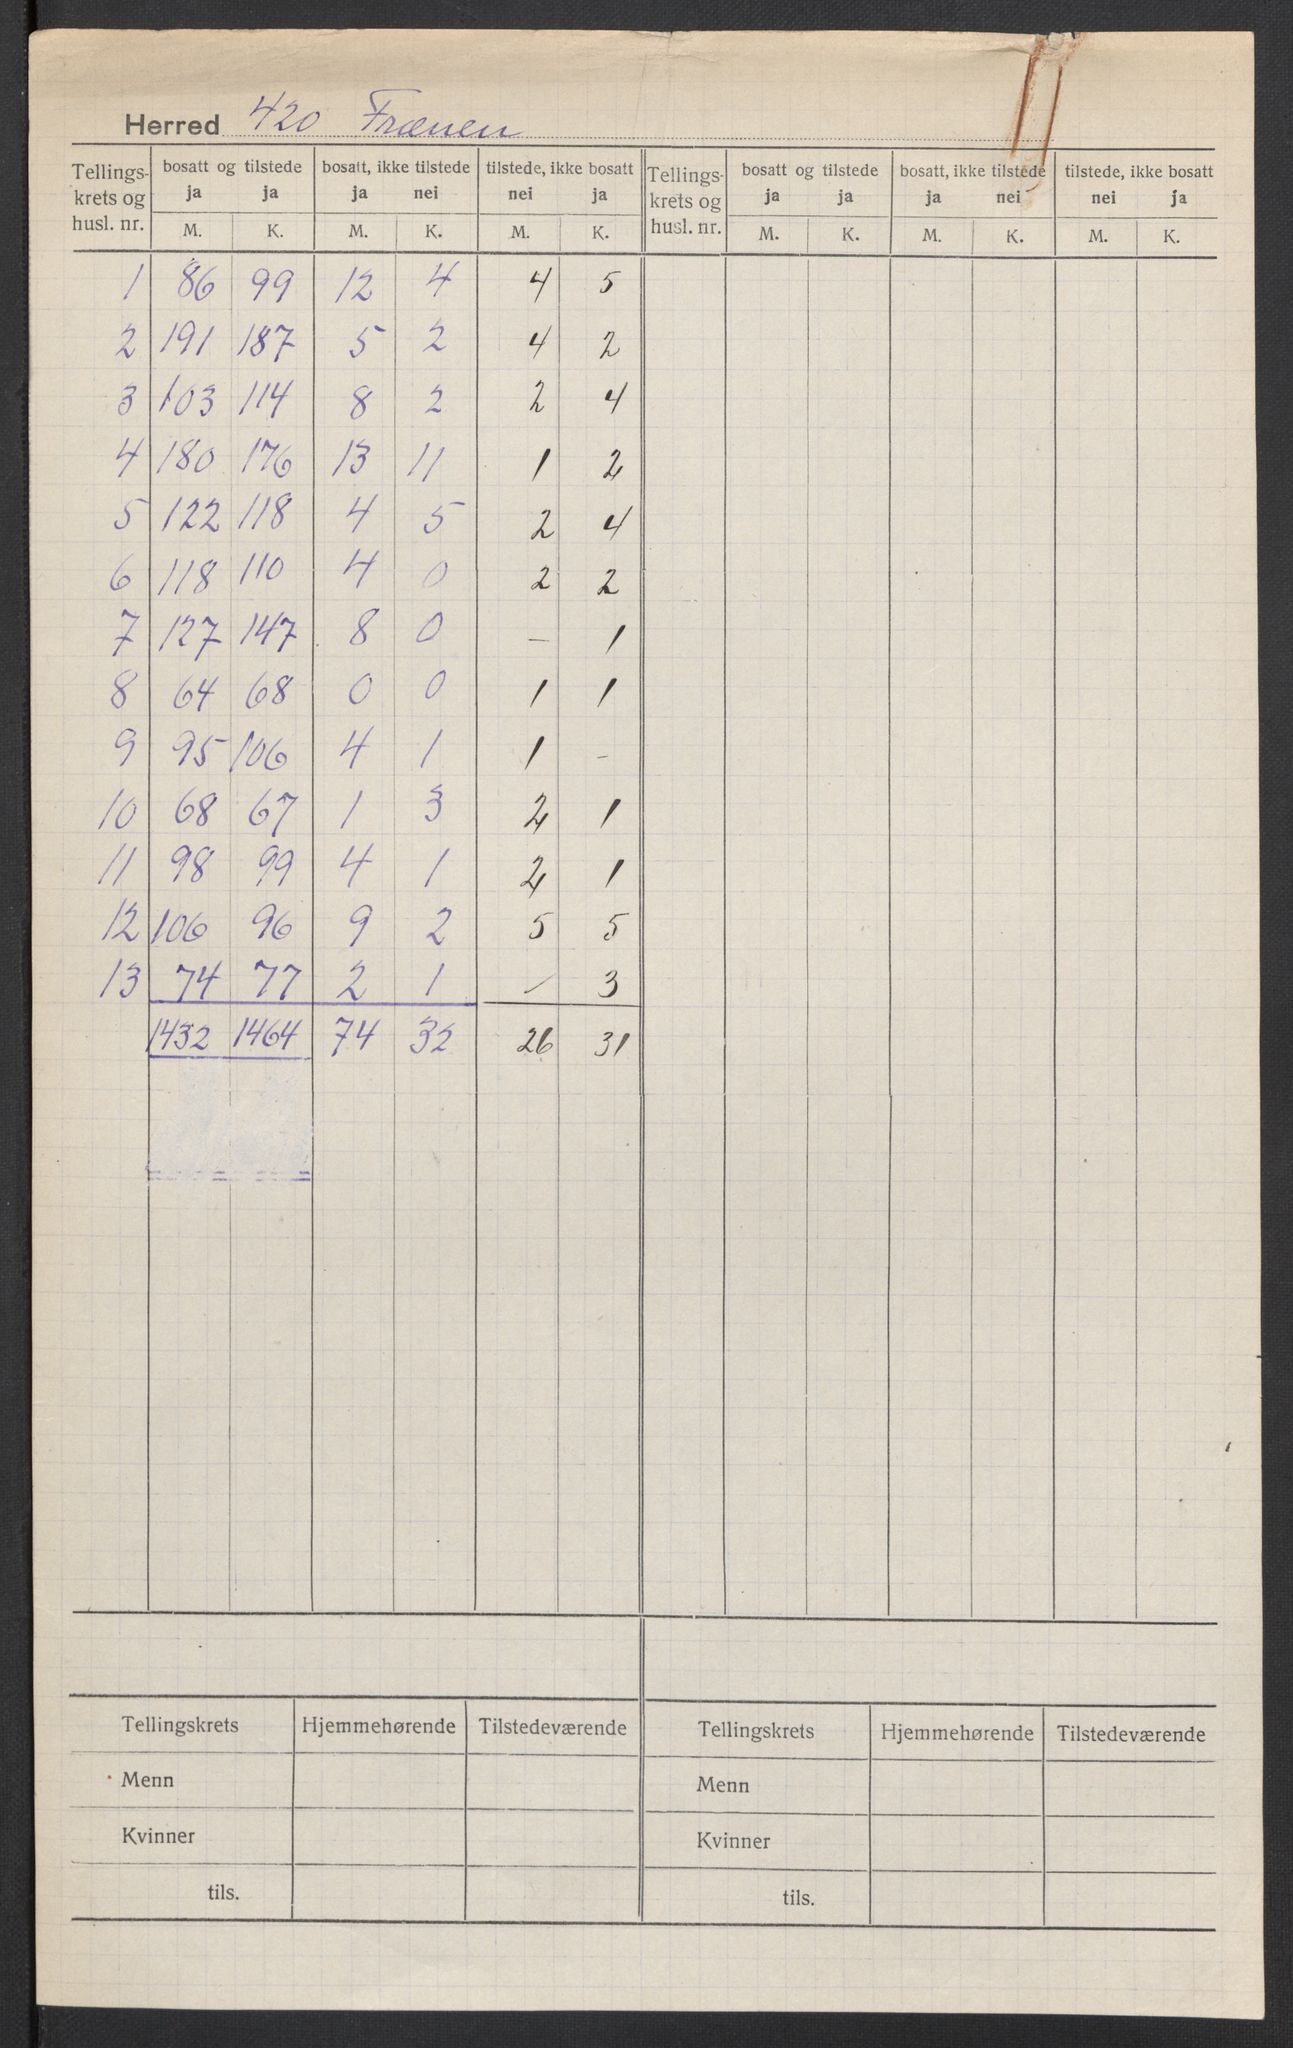 Herred 420 Frænen
Tellings- krets og husl. nr. bosatt og tilstede ja ja bosatt, ikke tilstede ja nei tilstede, ikke bosatt nei ja Tellings- krets og husl. nr. bosatt og tilstede ja ja bosatt, ikke tilstede ja nei tilstede, ikke bosatt nei ja
M. K. M. K. M. K. M. K. M. K. M. K.
1 86 99 12 4 4 5
2 191 187 5 2 4 2
3 103 114 8 2 2 4
4 180 176 13 11 1 2
5 122 118 4 5 2 4
6 118 110 4 0 2 2
7 127 147 8 0 – 1
8 64 68 0 0 1 1
9 95 106 4 1 1 –
10 68 67 1 3 2 1
11 98 99 4 1 2 1
12 106 96 9 2 5 5
13 74 77 2 1 – 3
1432 1464 74 32 26 31
Tellingskrets Hjemmehørende Tilstedeværende Tellingskrets Hjemmehørende Tilstedeværende
Menn Menn
Kvinner Kvinner
tils. tils.